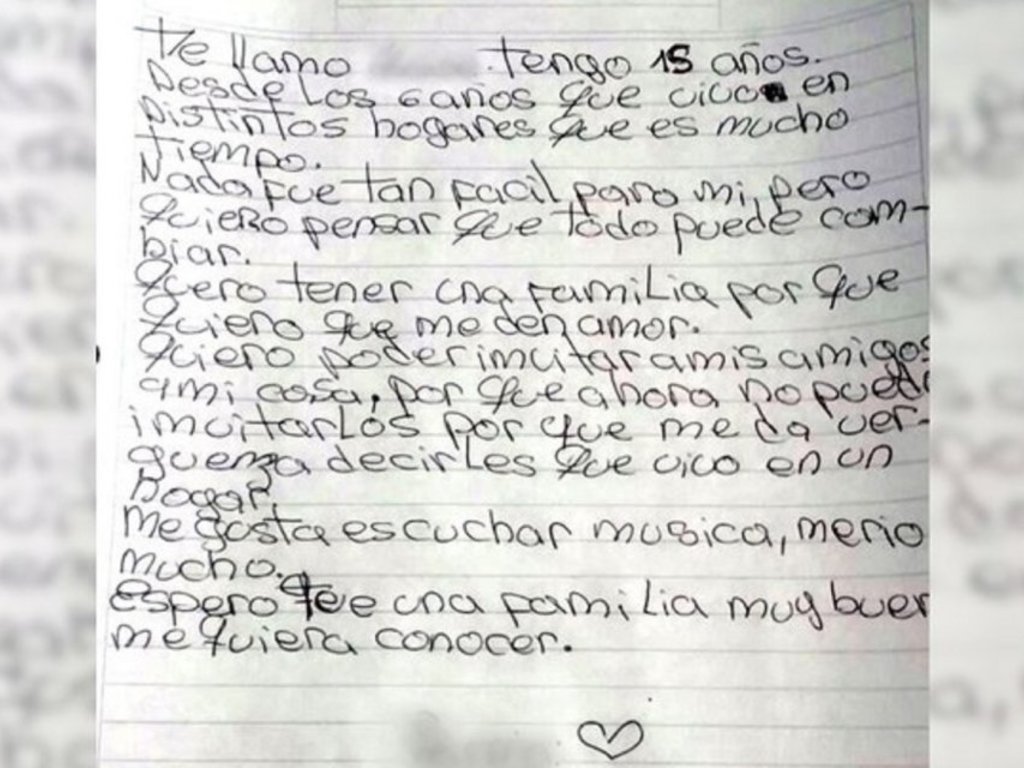 Te llamo tengo 15 años.
Desde Los 6 años que vivo en
Distintos hogares que es mucho
tiempo.
Nada fue tan facil para mi, pero
quiero pensar que todo puede cam-
biar.
Quero tener una familia por que
quiero que me den amor.
quiero poder imvitar amis amigos
ami casa, por que ahora no puedo
imvitarLos por que me da ver-
guenza decirLes que vivo en un
hogar.
me gusta escuchar musica, merio
mucho.
espero que una familia muy buen
me quiera conocer.